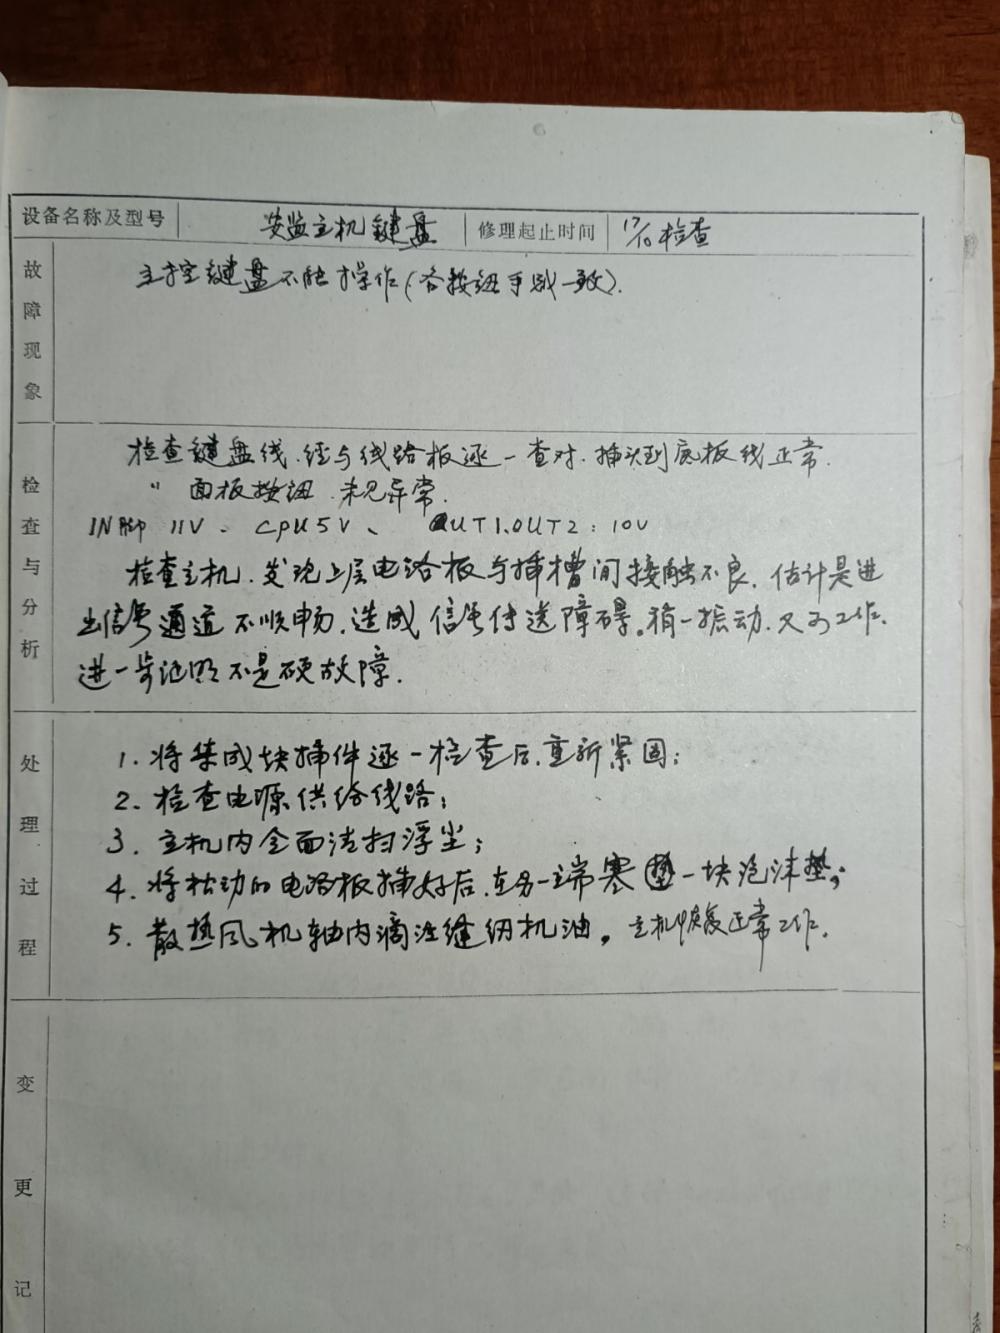 设备名称及型号 安监主机键盘 修理起止时间 17/10 检查
故障现象
主控键盘不能操作(各按钮手感一致).
检查与分析
检查键盘线.经与线路板逐一查对.插头到底板线正常.
" 面板按钮.未见异常.
IN脚 11V、CPU5V、OUT1.OUT2:10V
检查主机.发现上层电路板与插槽间接触不良.估计是进
出信号通道不顺畅.造成信号传送障碍。稍一振动.又可工作.
进一步证明不是硬故障.
处理过程
1.将集成块插件逐一检查后.重新紧固;
2.检查电源供给线路;
3.主机内全面清扫浮尘;
4.将松动的电路板插好后.在另一端塞垫一块泡沫垫;
5.散热风机轴内滴注缝纫机油。主机恢复正常工作.
变更记